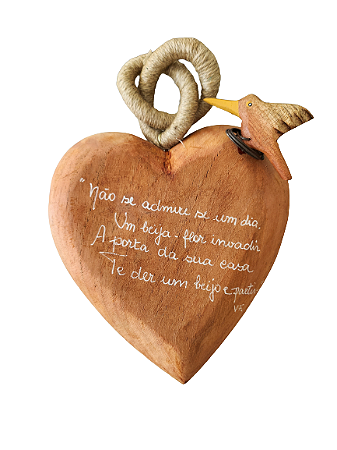 "Não se admire se um dia.
Um beija-flor invadir
A porta da sua casa
Te der um beijo e partir